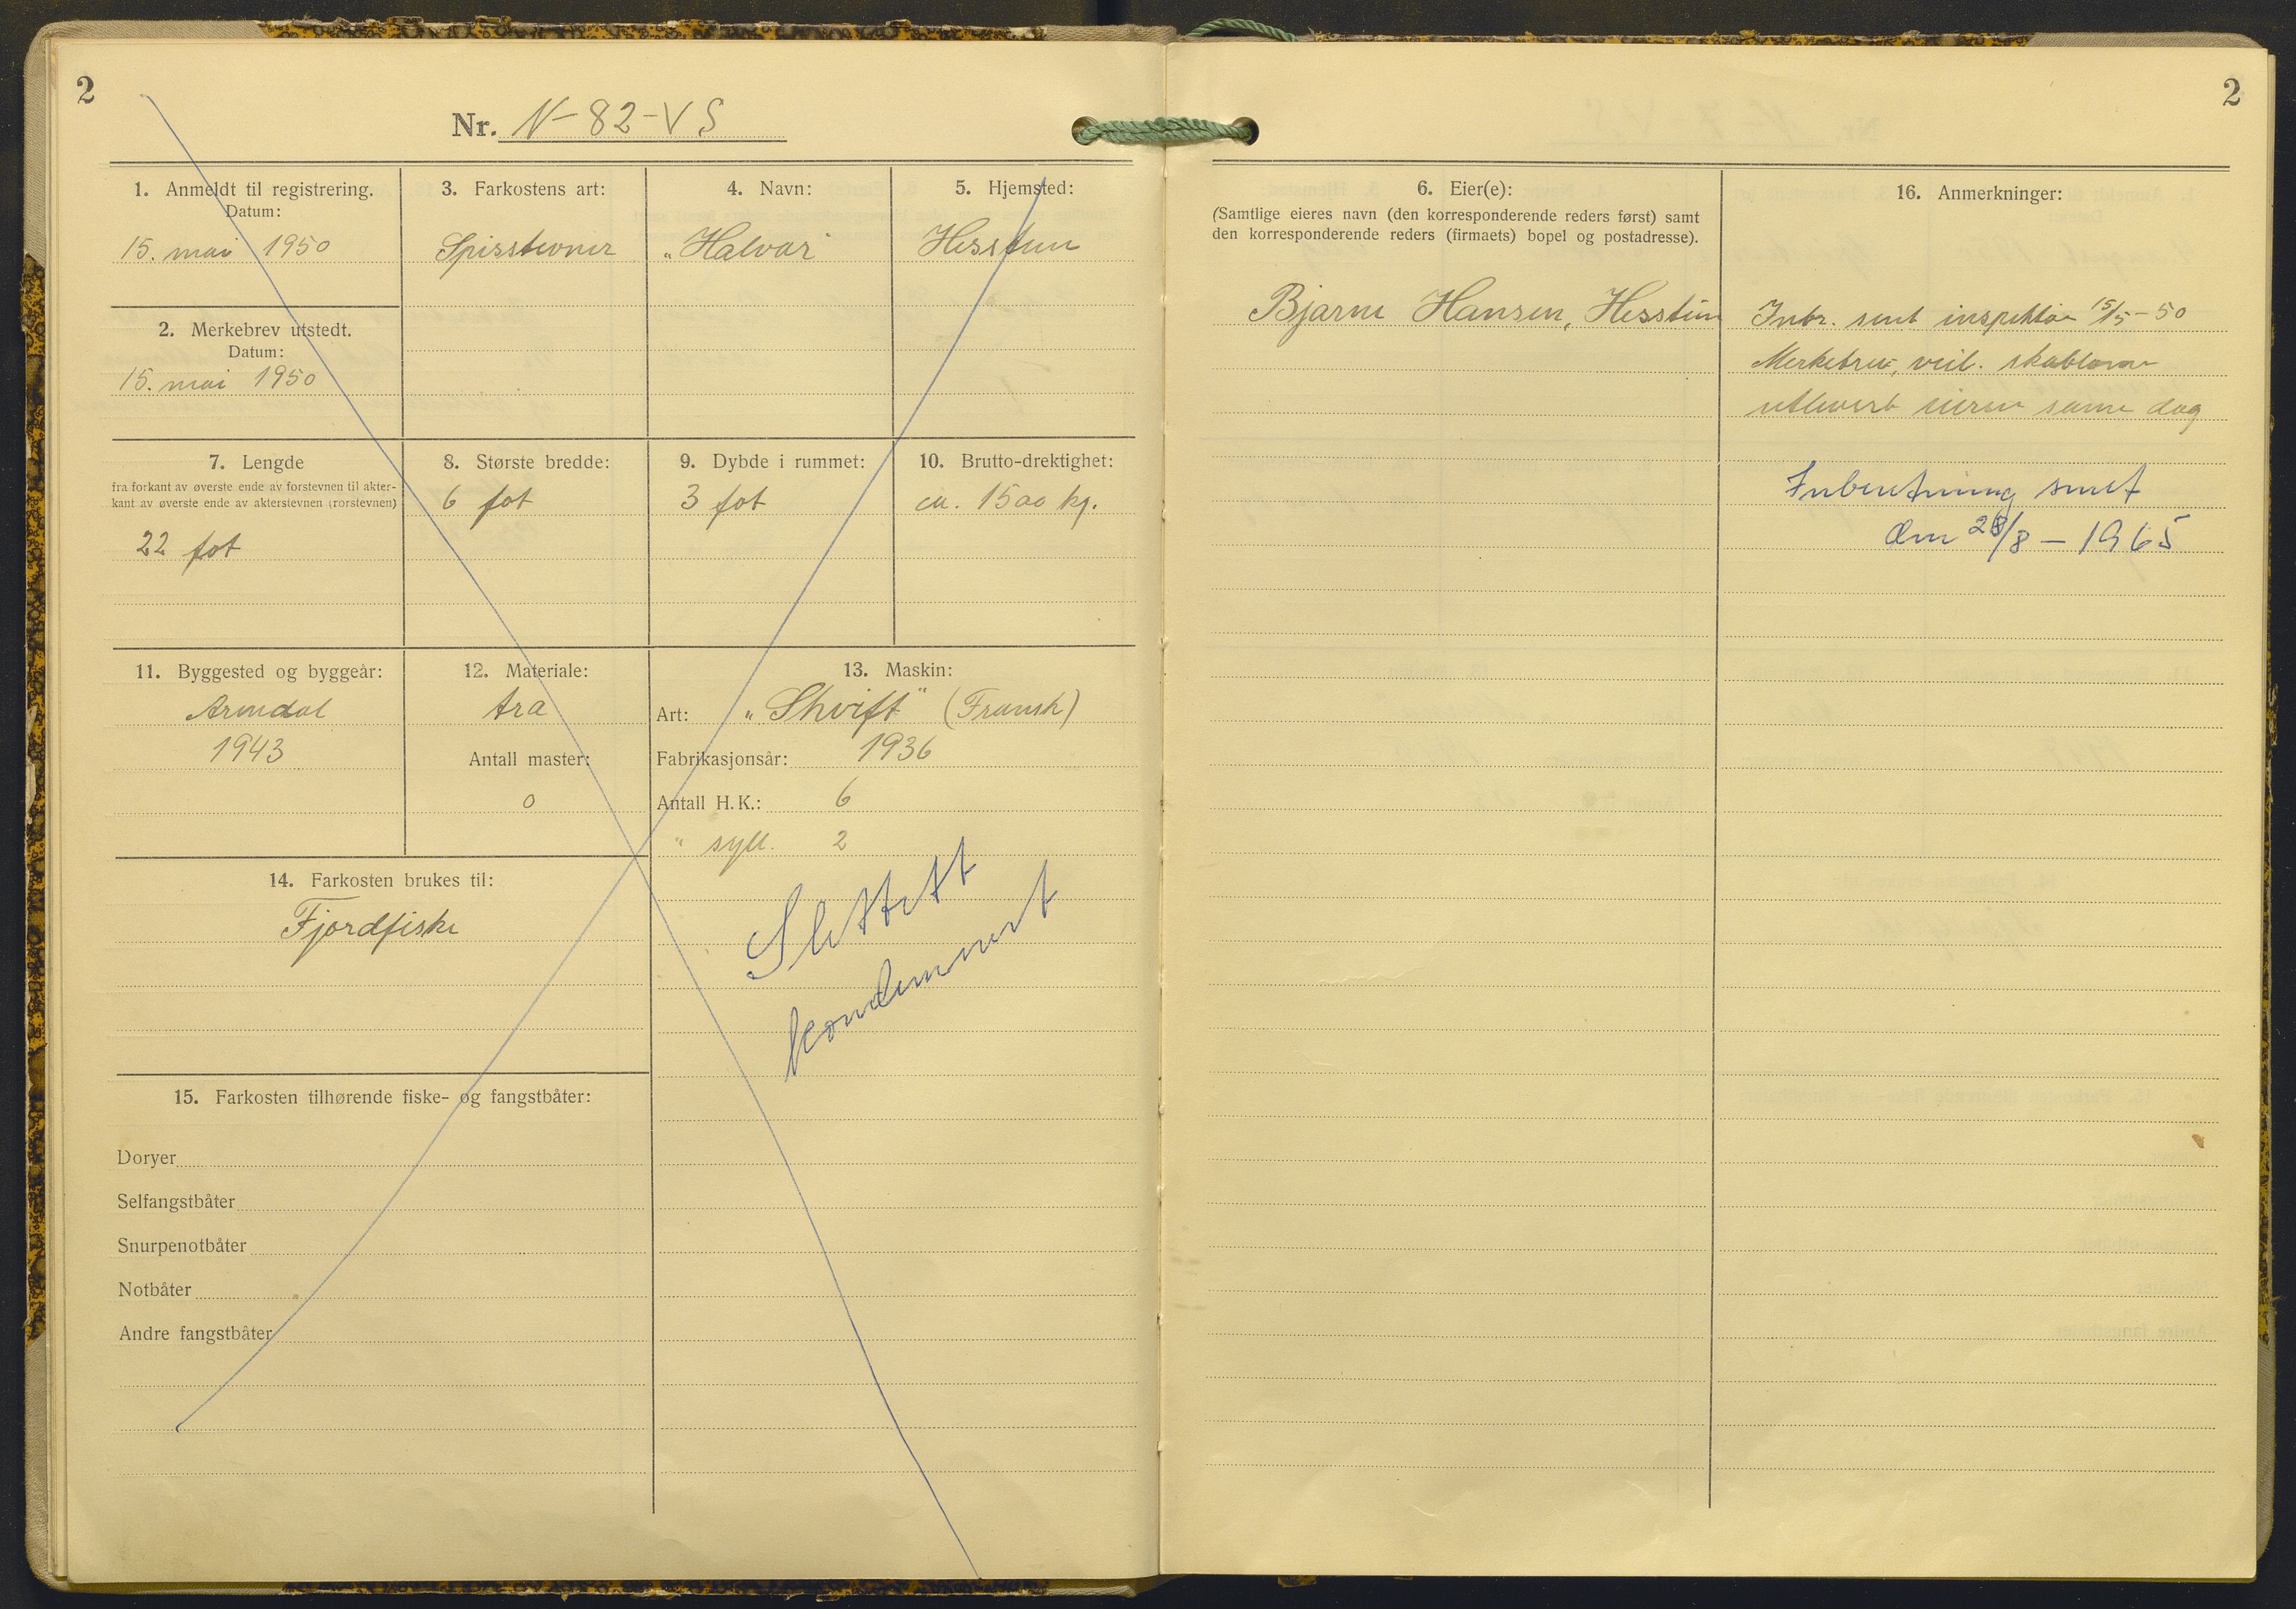 2
Nr. N-82-VS
1. Anmeldt til registrering.
Datum:
15. mai 1950
2. Merkebrev utstedt.
Datum:
15. mai 1950
3. Farkostens art:
Spisstevner
4. Navn:
"Halvar"
5. Hjemsted:
Hesstun
7. Lengde
fra forkant av øverste ende av forstevnen til akter-
kant av øverste ende av akterstevnen (rorstevnen)
22 fot
8. Største bredde:
6 fot
9. Dybde i rummet:
3 fot
10. Brutto-drektighet:
ca. 1500 kg.
11. Byggested og byggeår:
Arendal
1943
12. Materiale:
tra
Antall master:
0
13. Maskin:
Art: "Skvift" (Fransk)
Fabrikasjonsår: 1936
Antall H.K.: 6
" syll. 2
Slettett
kondemnert
14. Farkosten brukes til:
Fjordfiske
15. Farkosten tilhørende fiske- og fangstbåter:
Doryer
Selfangstbåter
Snurpenotbåter
Notbåter
Andre fangstbåter
2
6. Eier(e):
(Samtlige eieres navn (den korresponderende reders først) samt
den korresponderende reders (firmaets) bopel og postadresse).
Bjarne Hansen, Hesstun
16. Anmerkninger:
Inbr. sent inspektør 15/5-50
Merkebrev, veil. skablona
utlevert eieren same dag
Inberetning sent
den 28/8-1965